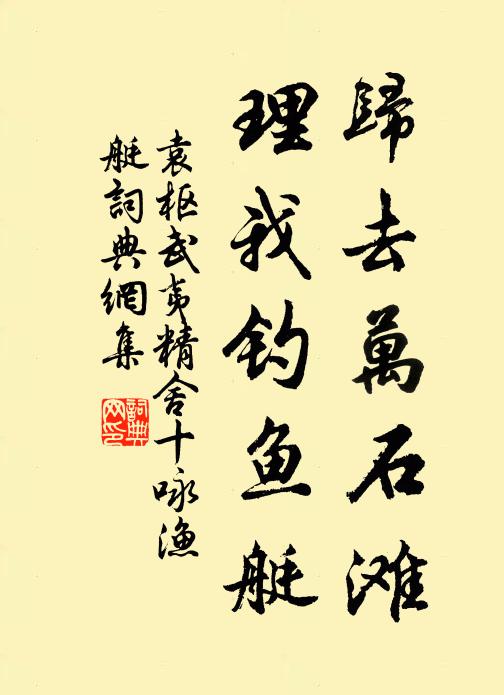 歸去萬石滩
理我钓鱼艇
袁枢武夷精舍十咏渔
艇詞典網集
詞典
网印